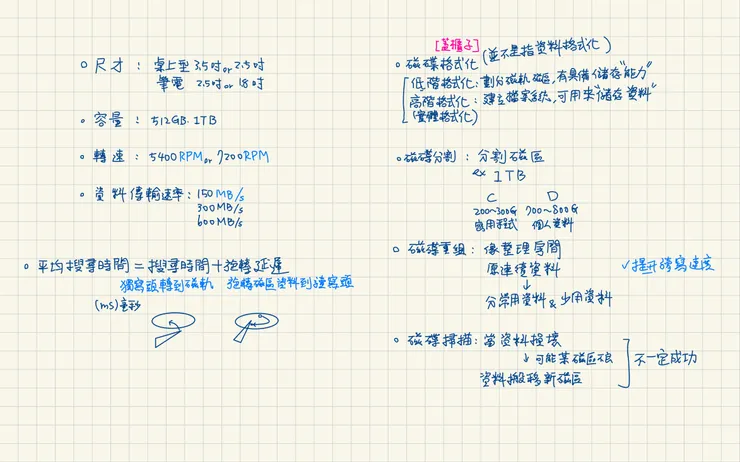 尺寸：桌上型 3.5吋 or 2.5吋
筆電 2.5吋 or 1.8吋
容量：512GB. 1TB
轉速：5400RPM or 7200RPM
資料傳輸速率：150MB/s
300MB/s
600MB/s
平均搜尋時間 = 搜尋時間 + 旋轉延遲
讀寫頭轉到磁軌 旋轉磁區資料到讀寫頭
(ms)毫秒
[蓋櫃子]
磁碟格式化 (並不是指資料格式化)
低階格式化：劃分磁軌磁區, 有具備儲存"能力"
高階格式化：建立檔案系統, 可用來"儲存資料"
(實體格式化)
磁碟分割：分割磁區
ex 1TB
C D
200~300G 700~800G
應用程式 個人資料
磁碟重組：像整理房間
原連續資料 ✓提升讀寫速度
↓
分常用資料 & 少用資料
磁碟掃描：當資料損壞
↓可能某磁區壞 不一定成功
資料搬移新磁區